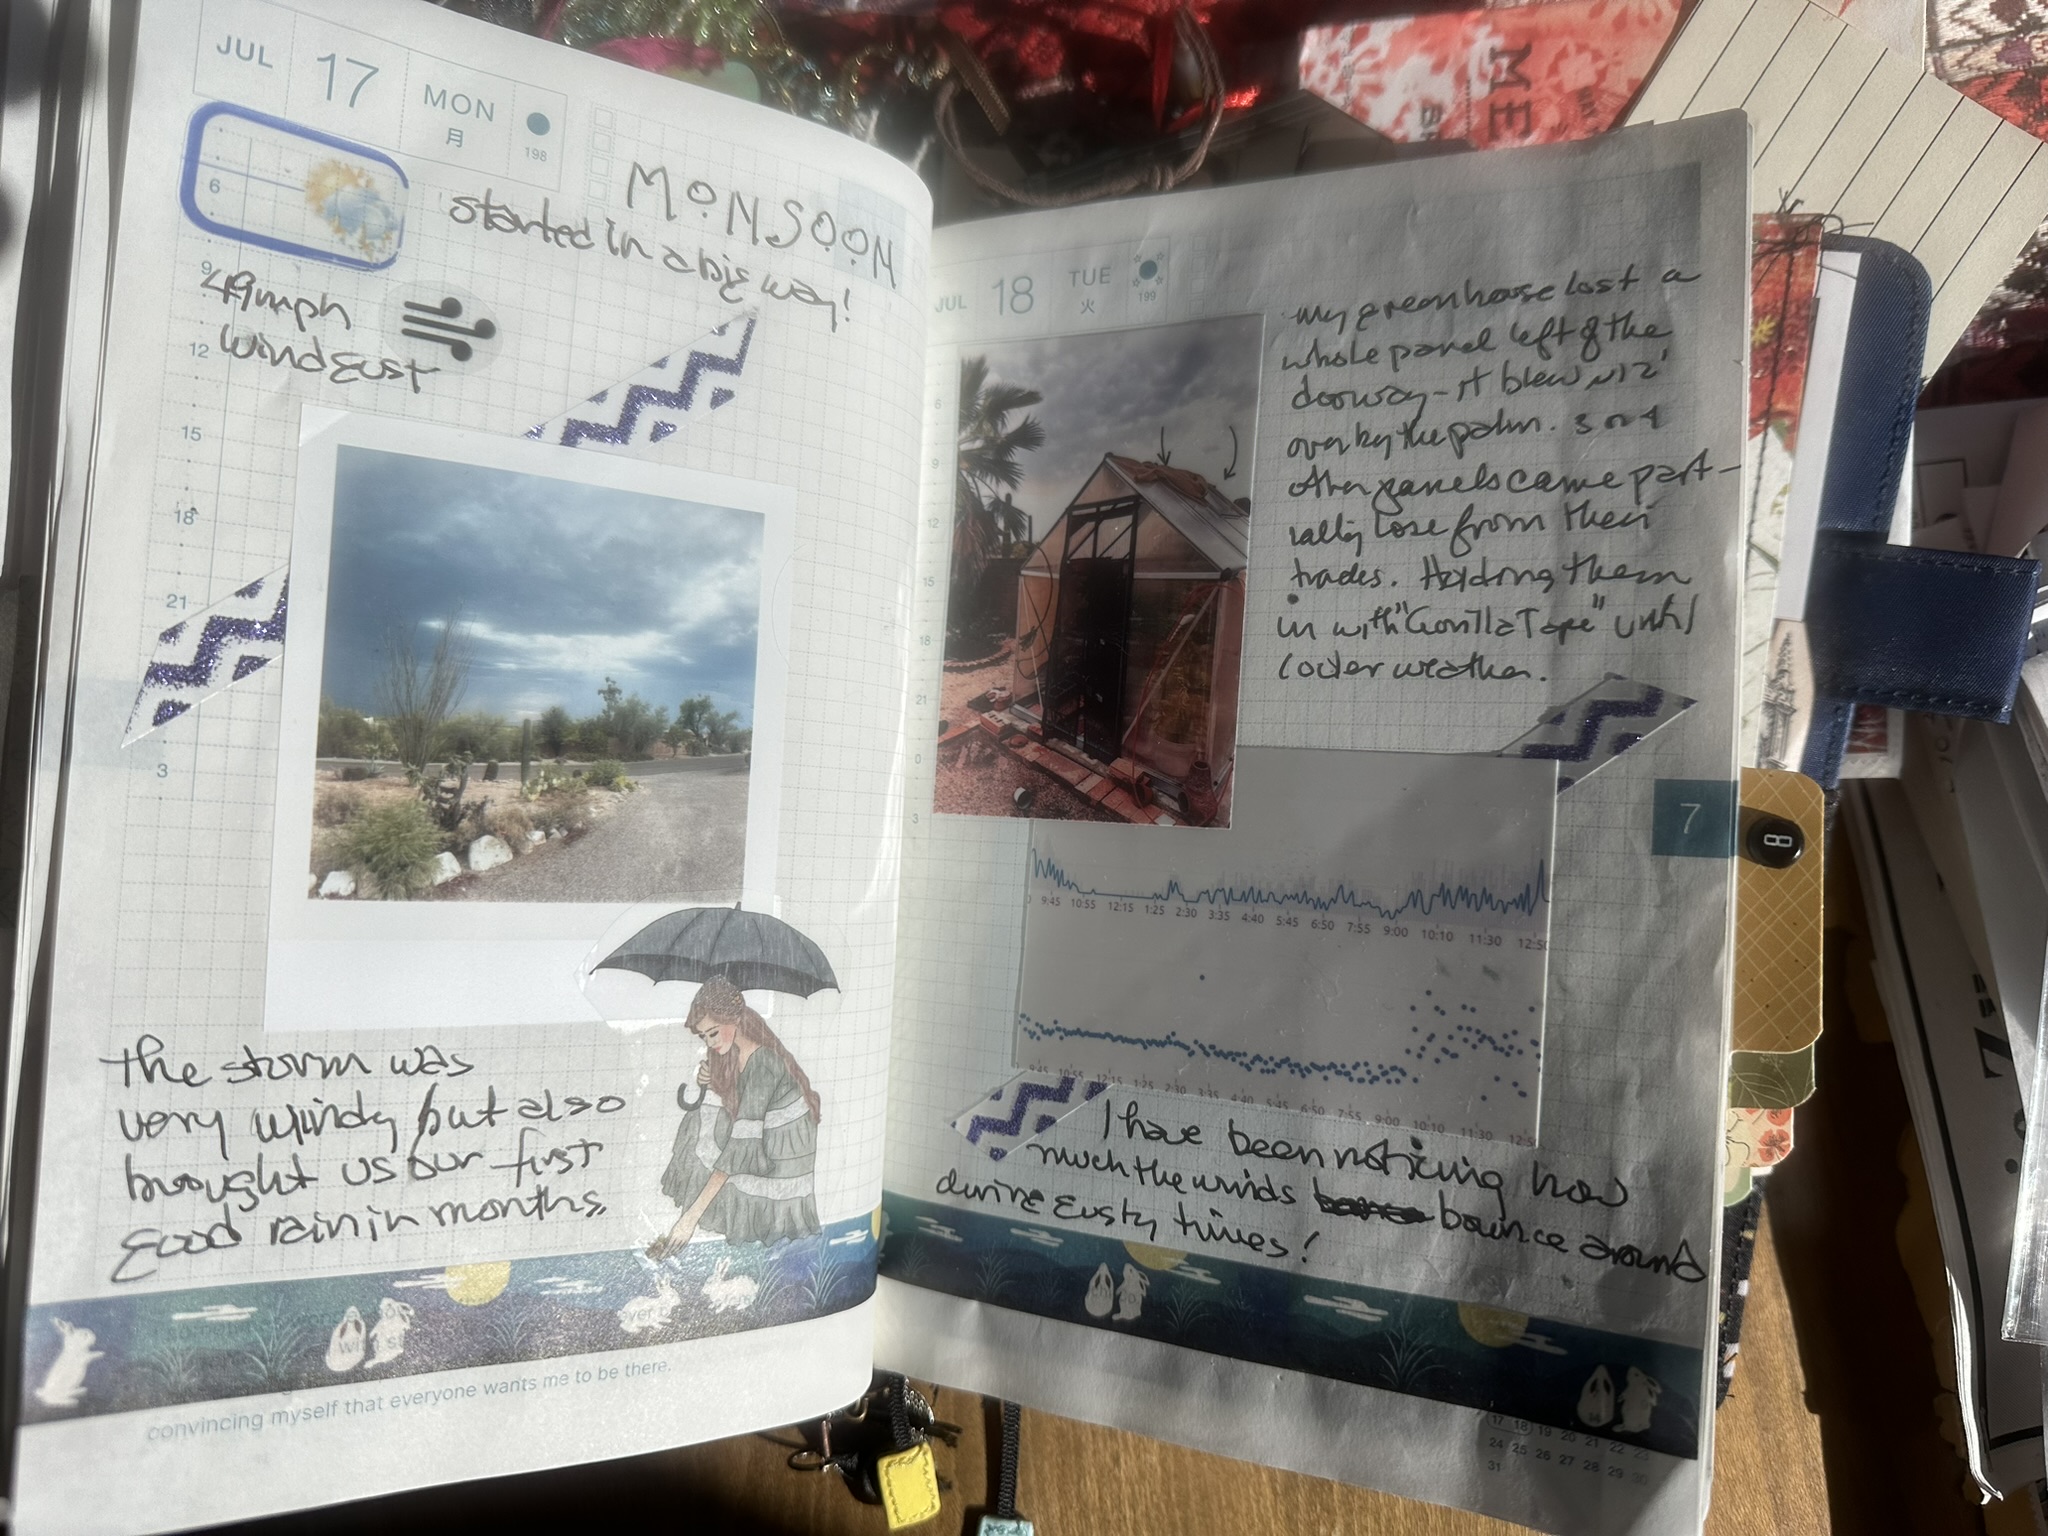 JUL 17 MON
月 198
MONSOON
started in a big way!
6
9
49mph
wind gust
12
15
18
21
3
The storm was
very windy but also
brought us our first
good rain in months.
convincing myself that everyone wants me to be there.
JUL 18 TUE
火 199
My greenhouse lost a
whole panel left of the
doorway - it blew
over by the palm. 3 or 4
other panels came part-
ially lose from their
tracks. Holding them
in with "Gorilla Tape" until
cooler weather.
6
9
12
15
18
21
0
3
7
8
9:45 10:55 12:15 1:25 2:30 3:35 4:40 5:45 6:50 7:55 9:00 10:10 11:30 12:50
9:45 10:55 12:15 1:25 2:30 3:35 4:40 5:45 6:50 7:55 9:00 10:10 11:30 12:5
I have been noticing how
much the winds bounce around
during gusty times!
17 18 19 20 21 22 23
24 25 26 27 28 29 30
31
ME